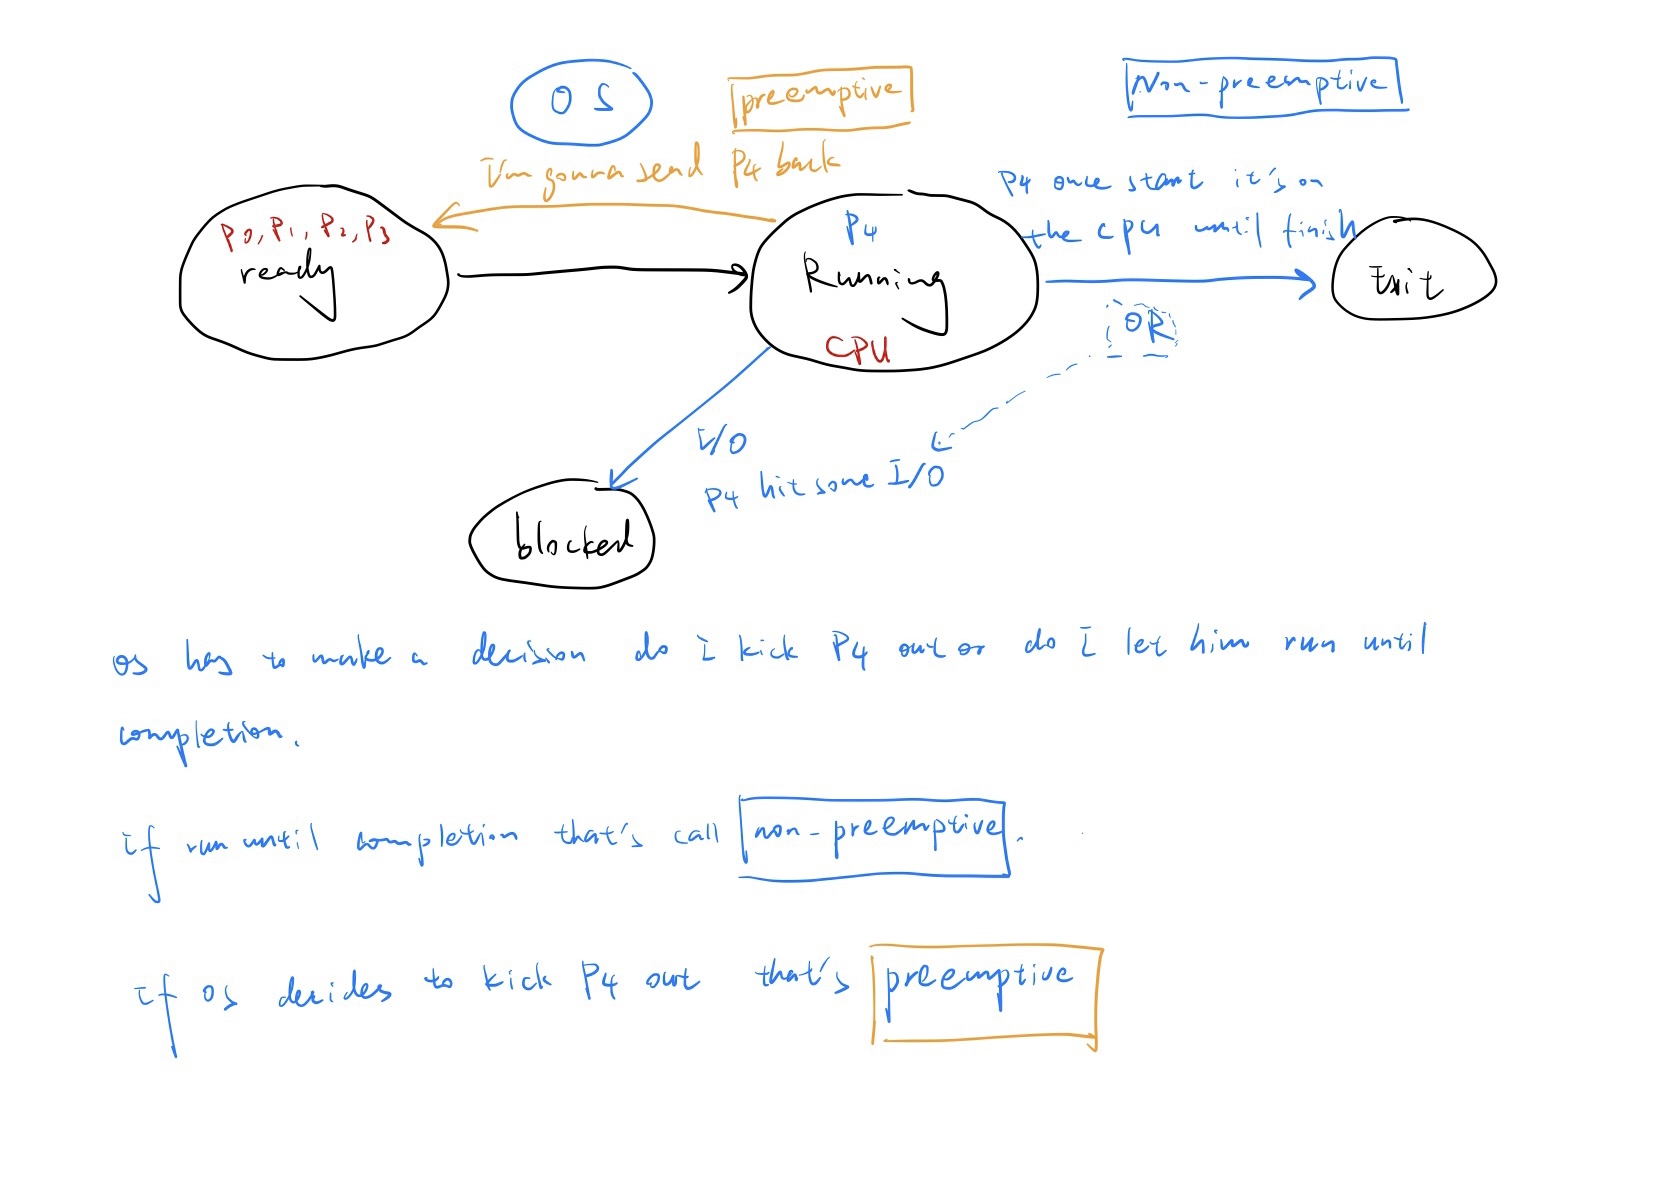 OS
preemptive
Non-preemptive
I'm gonna send P4 back
P4 once start it's on
the CPU until finish
P0, P1, P2, P3
ready
P4
Running
CPU
Exit
OR
I/O
P4 hit some I/O
blocked
OS has to make a decision do I kick P4 out or do I let him run until
completion.
If run until completion that's call non-preemptive.
If OS decides to kick P4 out that's preemptive